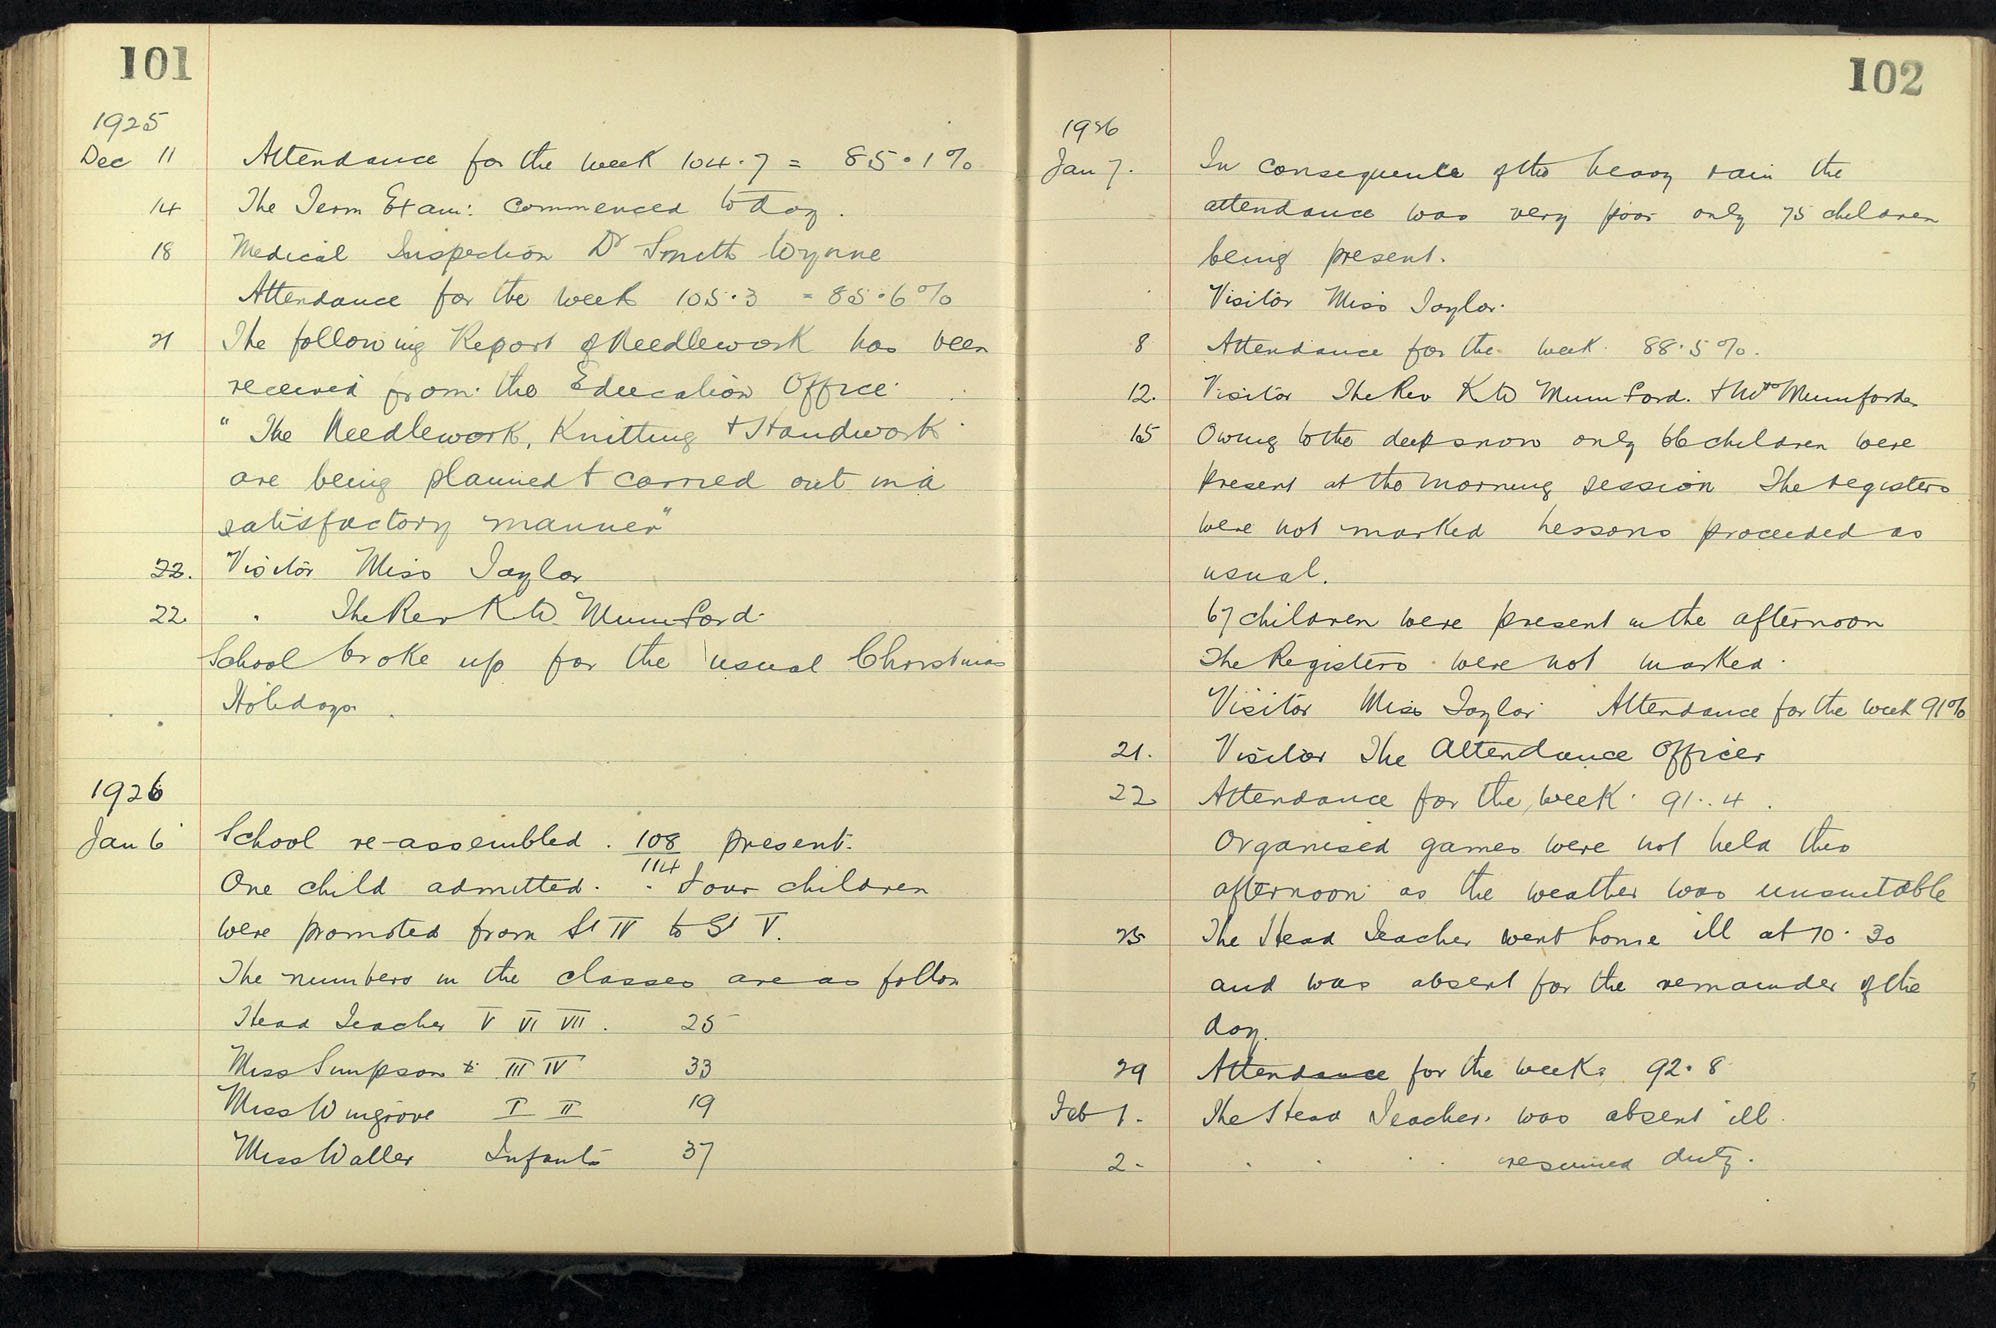 101
1925
Dec 11 Attendance for the week 104.7 = 85.1%
14 The Term Exam: commenced today.
18 Medical Inspection Dr Smith Wynne
Attendance for the week 105.3 = 85.6%
21 The following Report of Needlework has been
received from the Education Office
" The Needlework, Knitting + Handwork
are being planned + carried out in a
satisfactory manner"
22. Visitor Miss Taylor
22 " The Rev K W Mumford.
School broke up for the usual Christmas
Holidays.
1926
Jan 6 School re-assembled. 108/114 present.
One child admitted. Four children
were promoted from St IV to St V.
The numbers in the classes are as follow
Head Teacher V VI VII. 25
Miss Simpson III IV 33
Miss Wingrove I II 19
Miss Waller Infants 37
102
1926
Jan 7. In consequence of the heavy rain the
attendance was very poor only 75 children
being present.
Visitor Miss Taylor.
8 Attendance for the week 88.5%.
12. Visitor The Rev K W Mumford. + Mrs Mumford
15 Owing to the deep snow only 66 children were
present at the morning session The registers
were not marked Lessons proceeded as
usual.
67 children were present in the afternoon
The Registers were not marked.
Visitor Miss Taylor Attendance for the week 91%
21. Visitor The Attendance Officer
22 Attendance for the week 91.4.
Organised games were not held this
afternoon as the weather was unsuitable
25 The Head Teacher went home ill at 10.30
and was absent for the remainder of the
day.
29 Attendance for the week 92.8
Feb 1. The Head Teacher was absent ill.
2. " " " resumed duty.